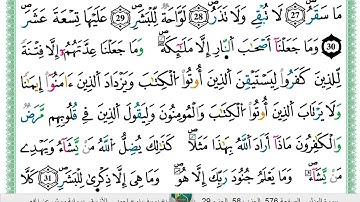 مَا سَقَرُ ۝٢٧ لَا تُبْقِي وَلَا تَذَرُ ۝٢٨ لَوَّاحَةٌ لِّلْبَشَرِ ۝٢٩ عَلَيْهَا تِسْعَةَ عَشَرَ
۝٣٠ وَمَا جَعَلْنَا أَصْحَٰبَ ٱلنَّارِ إِلَّا مَلَٰٓئِكَةً ۙ وَمَا جَعَلْنَا عِدَّتَهُمْ إِلَّا فِتْنَةً
لِّلَّذِينَ كَفَرُوا۟ لِيَسْتَيْقِنَ ٱلَّذِينَ أُوتُوا۟ ٱلْكِتَٰبَ وَيَزْدَادَ ٱلَّذِينَ ءَامَنُوٓا۟ إِيمَٰنًا ۙ
وَلَا يَرْتَابَ ٱلَّذِينَ أُوتُوا۟ ٱلْكِتَٰبَ وَٱلْمُؤْمِنُونَ ۙ وَلِيَقُولَ ٱلَّذِينَ فِي قُلُوبِهِم مَّرَضٌ
وَٱلْكَٰفِرُونَ مَاذَآ أَرَادَ ٱللَّهُ بِهَٰذَا مَثَلًا ۚ كَذَٰلِكَ يُضِلُّ ٱللَّهُ مَن يَشَآءُ وَيَهْدِي
مَن يَشَآءُ ۚ وَمَا يَعْلَمُ جُنُودَ رَبِّكَ إِلَّا هُوَ ۚ وَمَا هِيَ إِلَّا ذِكْرَىٰ لِلْبَشَرِ ۝٣١ كَلَّا